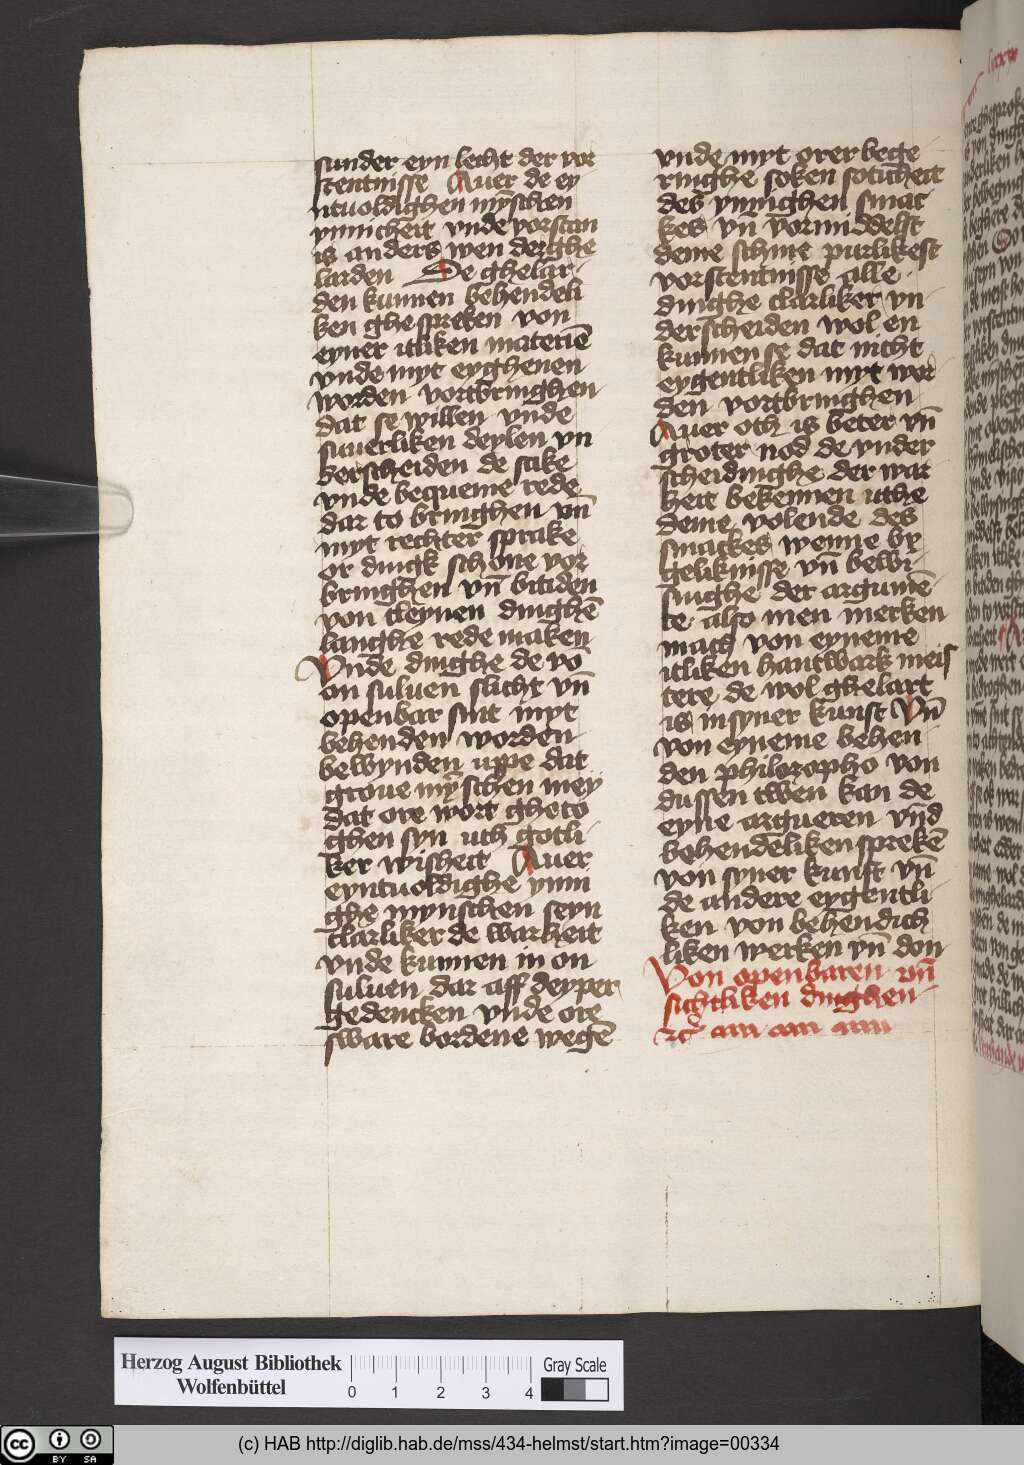 sunder eyn lecht der vor
stentnisse Auer de ey
ntuoldighen mȳschen
ynnicheit vnde vorstan
is anders wen der ghe
larden De ghelar
den kunnen behendeli
ken ghespreken von
eyner itliken materiē
vnde myt eyghenen
worden vortbringhen
dat se willen vnde
suuerliken deylen vn
derscheiden de sake
vnde bequeme rede
dar to bringhen vn̄
myt rechter sprake
or dingk schone vor
bringhen vn̄ btuden
von cleynen dinghē
langhe rede maken
Vnde dinghe de vō
on suluen slicht vn̄
openbar sint myt
behenden worden
bewynden uppe dat
groue mȳschen mey
dat ore wort gheto
ghen syn uth gotli
ker wisheit Auer
eyntuoldighe ynni
ghe mynschen seyn
clarliker de warheit
vnde kunnen in on
suluen dar aff deyper
gedencken vnde ore
sware bordene wegē
vnde myt orer bege
ringhe soken soticheit
des ynnighen smac
kes vn̄ vormiddelst
deme schine purlikest
vorstentnisse alle
dinghe clarliker vn
derscheiden wol en
kunnen se dat nicht
eygentliken myt wor
den vortbringhen
Auer och is beter vn̄
groter nod de vnder
scheidinghe der war
heit bekennen uthe
deme volende des
smackes wenne by
geliknisse vn̄ bewi
singhe der argumē
te also men merken
mach von eyneme
itliken hantwark meis
tere de wol ghelart
is in syner kunst Vn̄
von eyneme behen
den philozopho von
dussen twen kan de
eyne argueren vn̄d
behendeliken sprekē
von syner kunst vn̄
de andere eygentli
ken von behendich
liken werken vn̄ don
Von openbaren vn̄
sichtliken dinghen
Herzog August Bibliothek
Wolfenbüttel
0 1 2 3 4
Gray Scale
cc BY SA
(c) HAB http://diglib.hab.de/mss/434-helmst/start.htm?image=00334